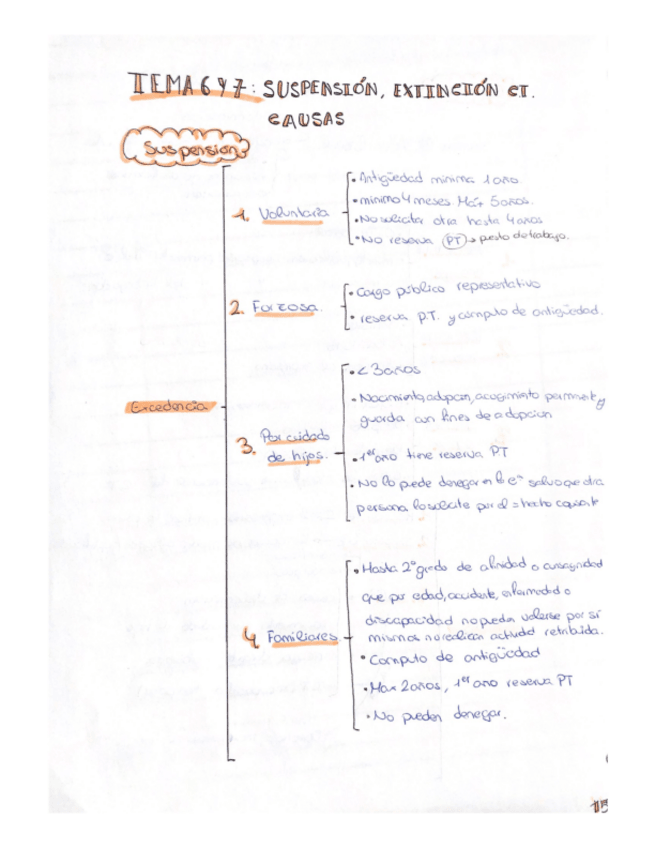 TEMA 6 Y 7: SUSPENSIÓN, EXTINCIÓN CT.
CAUSAS
Suspensión
Excedencia
1. Voluntaria
• Antigüedad minima 1 año.
• minimo 4 meses. Max 5 años.
• No solicitar otra hasta 4 años
• No reserva PT → puesto de trabajo.
2. Forzosa.
• Cargo público representativo
• reserva P.T. y cómputo de antigüedad.
3. Por cuidado
de hijos.
• < 3 años
• Nacimiento, adopcion, acogimiento permanente y
guarda con fines de adopcion
• 1er año tiene reserva PT
• No lo puede denegar la eª salvo que otra
persona lo solicite por el = hecho causante
4. Familiares
• Hasta 2º grado de afinidad o consanguinidad
que por edad, accidente, enfermedad o
discapacidad no puedan valerse por sí
mismos no realicen actividad retribuida.
• Computo de antigüedad
• Max 2 años, 1er año reserva PT
• No pueden denegar.
15